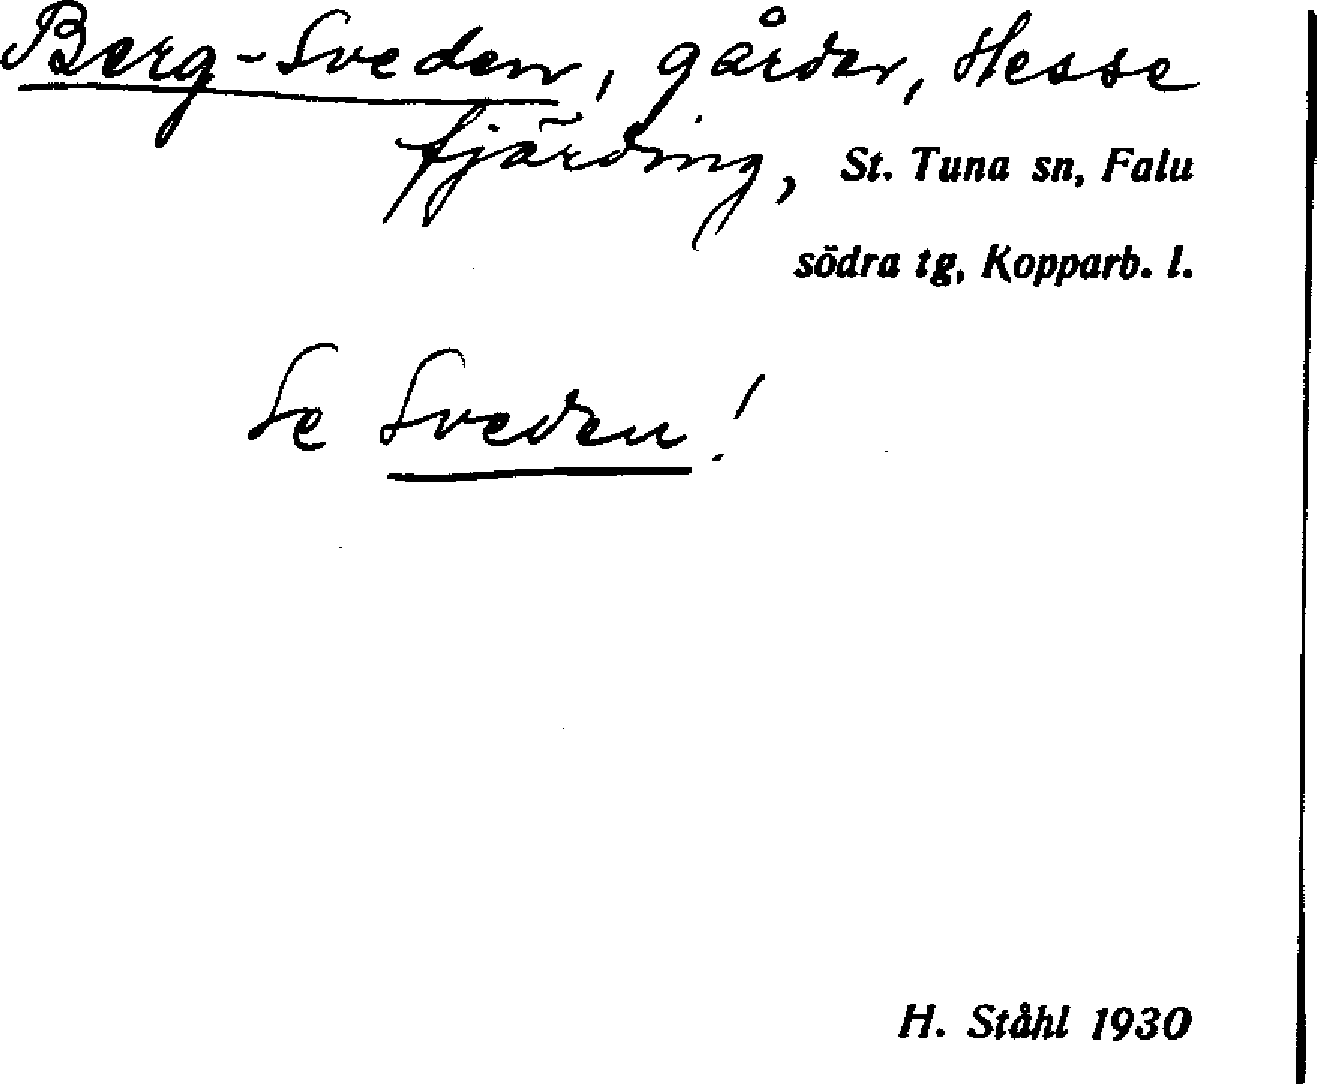 Berg-Sveden, gårdar, Hesse
fjärding, St. Tuna sn, Falu
södra tg, Kopparb. l.
Se Sveden!
H. Ståhl 1930